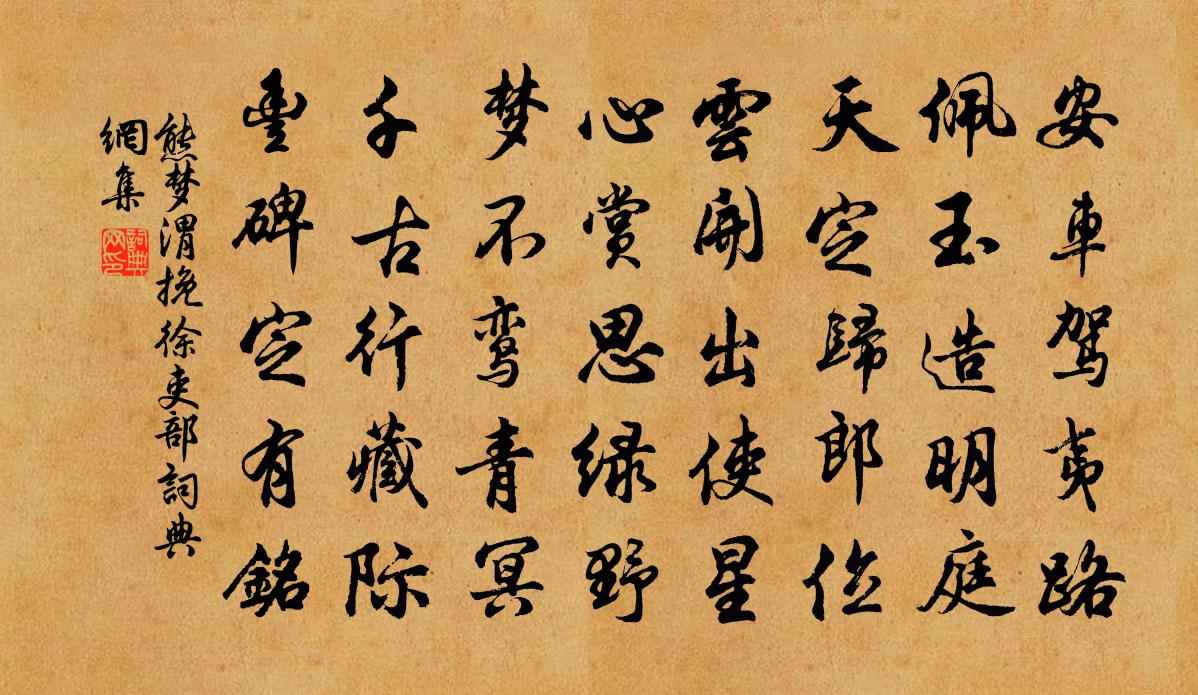 安車駕夷路
佩玉造明庭
天定歸郎位
雲開出使星
心赏思緑野
梦不鸾青冥
千古行藏际
豊碑定有銘
熊梦渭挽徐吏部詞典
網集
詞典網印